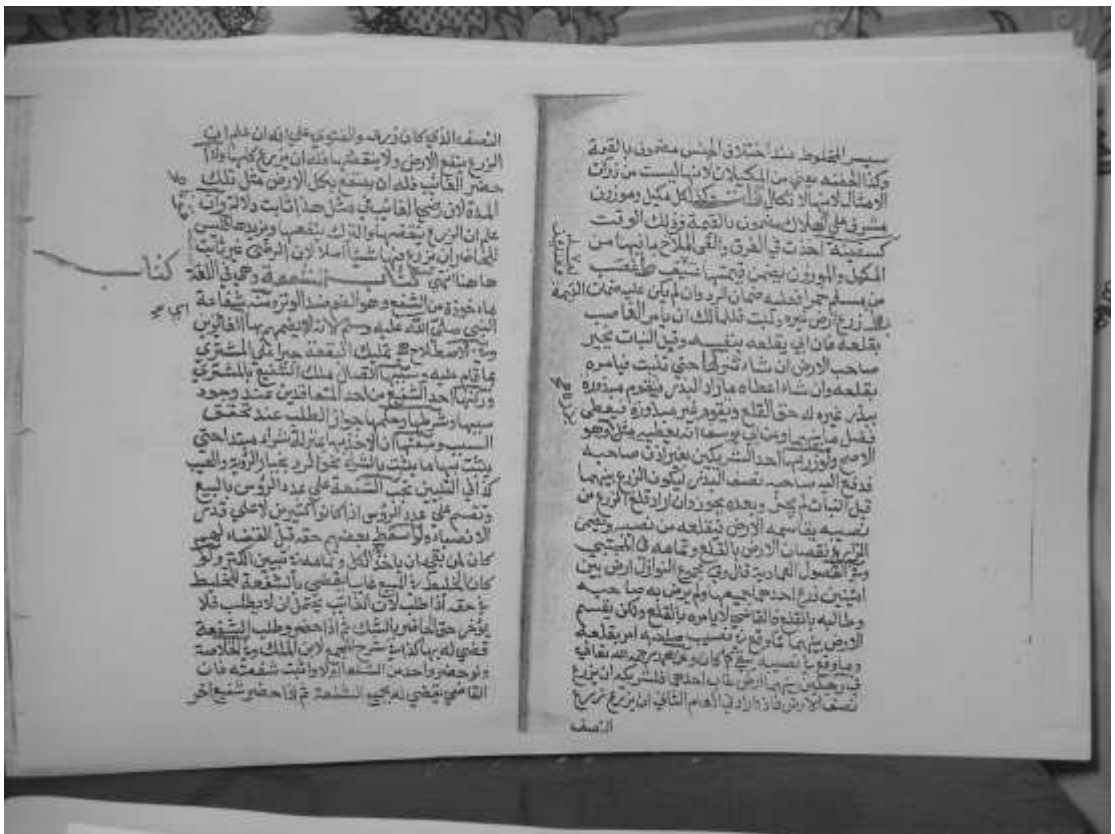 بسعر المخلوط عند اختلاف الجنس مضمون بالقيمة
وكذا الحفنة من المكيلات لانها ليست من ذوات
الامثال لانها لا تكال وكذا كل مكيل وموزون
مشرف على الهلاك مضمون بالقيمة في ذلك الوقت
كسفينة اخذت في الغرق والقى الملاح ما فيها من
المكيل والموزون يضمن قيمتها
من مسلم خمرا فعليه ضمان الرد وان لم يكن عليه ضمان القيمة
زرع ارض غيره ونبت فللمالك ان يامر الغاصب
بقلعه فان ابى يقلعه بنفسه وقبل النبات يخير
صاحب الارض ان شاء تركها حتى تنبت فيامره
بقلعه وان شاء اعطاه ما زاد البذر فيقوم مبذورة
ببذر غيره له حق القلع ويقوم غير مبذورة فيعطى
فضل ما بينهما وعن ابي يوسف انه يعطيه مثل وهو
الاصح ولو زرعها احد الشريكين بغير اذن صاحبه
فدفع اليه صاحبه نصف البذر ليكون الزرع بينهما
قبل النبات لم يجز وبعده يجوز وان اراد قلع الزرع من
نصيبه يقاسمه الارض فيقلعه من نصيبه ويضمن
الزارع نقصان الارض بالقلع وتمامه في المجتبى
وفي الفصول العمادية قال وفي مجموع النوازل ارض بين
اثنين زرع احدهما جميعها ولم يرض به صاحبه
وطالبه بالقلع فالقاضي لا يامره بالقلع ولكن يقسم
الارض بينهما فما وقع في نصيب صاحبه امر بقلعه
وما وقع في نصيبه يبقى كما كان وعن محمد رحمه الله تعالى
في رجلين بينهما ارض غاب احدهما فلشريكه ان يزرع
نصف الارض فاذا اراد في العام الثاني ان يزرع يزرع
النصف
النصف الذي كان زرعه والفتوى على انه ان علم ان
الزرع ينفع الارض ولا ينقصها فله ان يزرع كلها واذا
حضر الغائب فله ان ينتفع بكل الارض مثل تلك
المدة لان رضى الغائب في مثل هذا ثابت دلالة وان
علم ان الزرع ينقصها والترك ينفعها ويزيدها فليس
للحاضر ان يزرع فيها شيئا اصلا لان الرضى غير ثابت
هاهنا انتهى كتاب الشفعة وهي في اللغة
ماخوذة من الشفع وهو الضم ضد الوتر ومنه شفاعة
النبي صلى الله عليه وسلم لانه يضمهم بها الفائزين
وفي الاصطلاح تمليك البقعة جبرا على المشتري
بما قام عليه وسببها اتصال ملك الشفيع بالمشتري
وركنها اخذ الشفيع من احد المتعاقدين عند وجود
سببها وشرطها وحكمها جواز الطلب عند تحقق
السبب وصفتها ان الاخذ بها بمنزلة شراء مبتدا حتى
يثبت بها ما يثبت بالشراء نحو الرد بخيار الرؤية والعيب
كذا في التبيين تجب الشفعة على عدد الرؤس بالبيع
وتقسم على عدد الرؤس اذا كانوا كثيرين لا على قدر
الانصباء ولو اسقط بعضهم حقه قبل القضاء لهم
كان لمن بقي ان ياخذ الكل وتمامه في تبيين الكنز ولو
كان الخليط في المبيع غايبا يقضى بالشفعة للخليط
في حقه اذا طلب لان الغائب يحتمل ان لا يطلب فلا
يؤخر حق الحاضر بالشك ثم اذا حضر وطلب الشفعة
قضى له بها كذا في شرح المجمع لابن الملك وفي الخلاصة
ولو حضر واحد من الشفعاء اولا واثبت شفعته فان
القاضي يقضي له بجميع الشفعة ثم اذا حضر شفيع اخر
كتاب